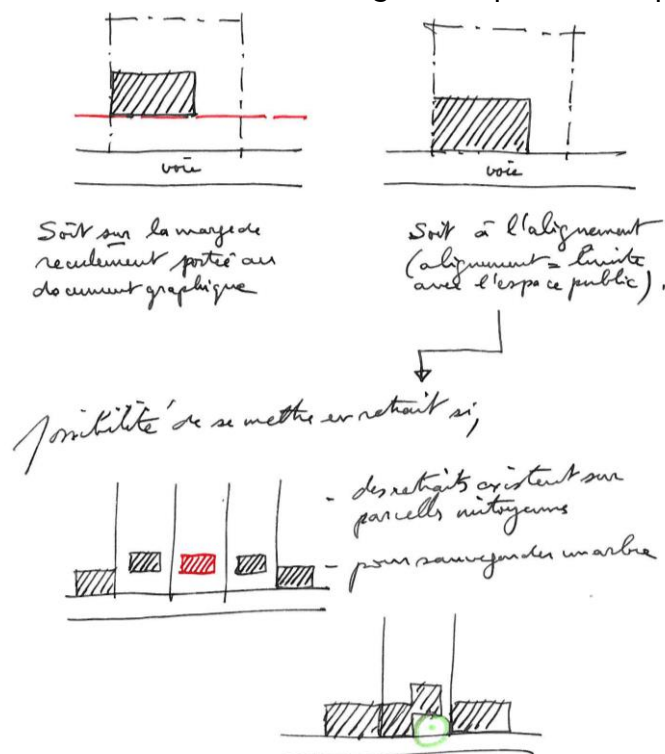 voie
voie
Soit sur la marge de
reculement portée au
document graphique
Soit à l'alignement
(alignement = limite
avec l'espace public).
possibilité de se mettre en retrait si,
- des retraits existent sur
parcelles mitoyennes
- pour sauvegarder un arbre